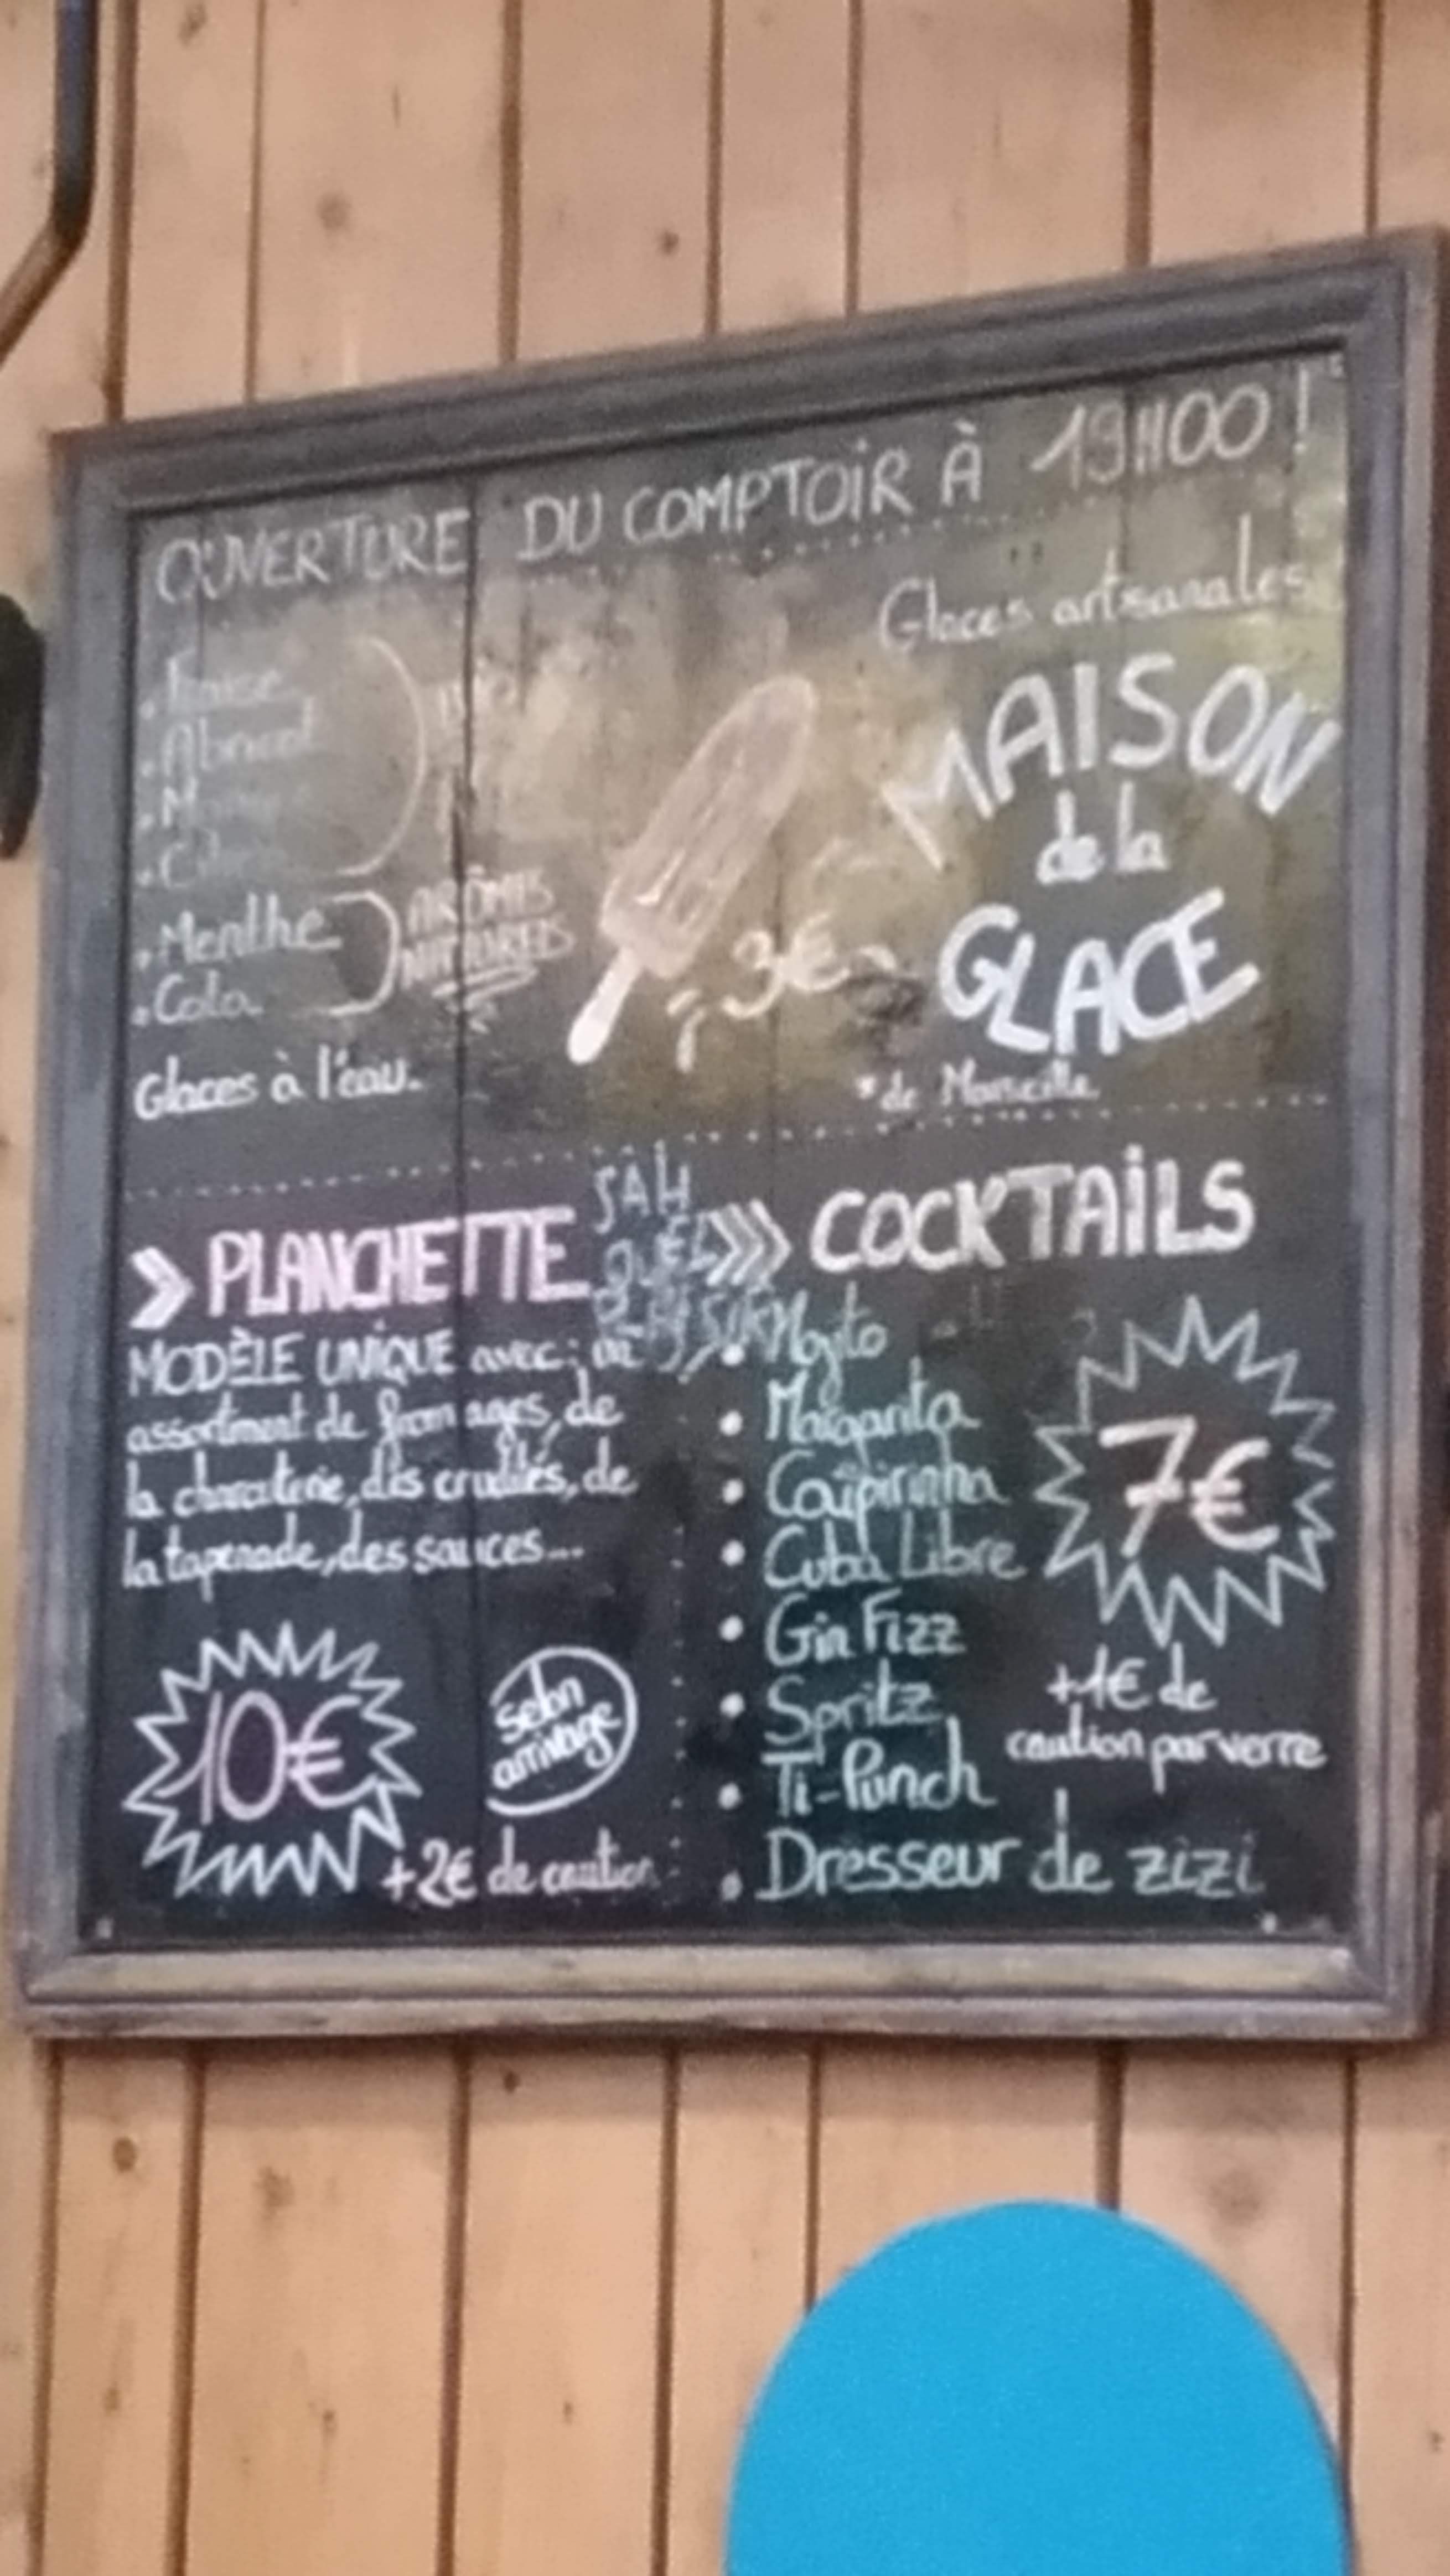 OUVERTURE DU COMPTOIR À 19H00 !
Glaces artisanales
MAISON
de la
GLACE
*de Marseille
3€
. Fraise
. Abricot
. Menthe
. Cola
ARÔMES
NATURELS
Glaces à l'eau.
> PLANCHETTE
SAH
QUEL
PLAISIR
MODÈLE UNIQUE avec:
assortiment de fromages, de
la charcuterie, des crudités, de
la tapenade, des sauces...
10€
selon
arrivage
+2€ de caution
>>> COCKTAILS
Mojito
• Margarita
• Caïpirinha
• Cuba Libre
• Gin Fizz
• Spritz
• Ti-Punch
• Dresseur de zizi
7€
+1€ de
caution par verre